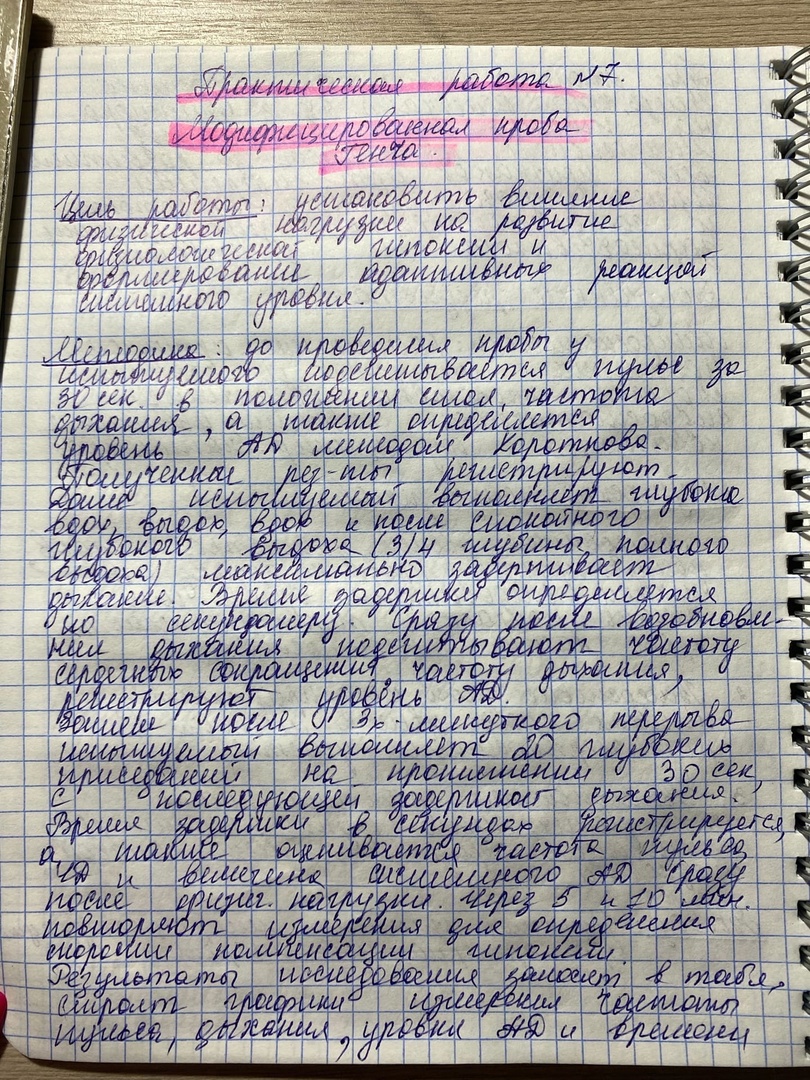 Практическая работа №7.
Модифицированная проба
Генча.
Цель работы: установить влияние
физической нагрузки на развитие
физиологической гипоксии и
формирование адаптивных реакций
системного уровня.
Методика: до проведения пробы у
испытуемого подсчитывается пульс за
30 сек. в положении стоя, частота
дыхания, а также определяется
уровень АД методом Короткова.
Полученные рез-ты регистрируют.
Далее испытуемый выполняет глубоко
вдох, выдох, вдох и после спокойного
глубокого выдоха (3/4 глубины полного
выдоха) максимально задерживает
дыхание. Время задержки определяется
по секундомеру. Сразу после возобновле-
ния дыхания подсчитывают частоту
сердечных сокращений, частоту дыхания,
регистрируют уровень АД.
Затем после 3х-минутного перерыва
испытуемый выполняет 20 глубоких
приседаний на протяжении 30 сек,
с последующей задержкой дыхания.
Время задержки в секундах регистрируется,
а также оценивается частота пульса,
ЧД и величина системного АД сразу
после физич. нагрузки. Через 5 и 10 мин.
повторяют измерения для определения
скорости компенсации гипоксии.
Результаты исследования заносят в табл,
строят графики измерения частоты
пульса, дыхания, уровня АД и времени